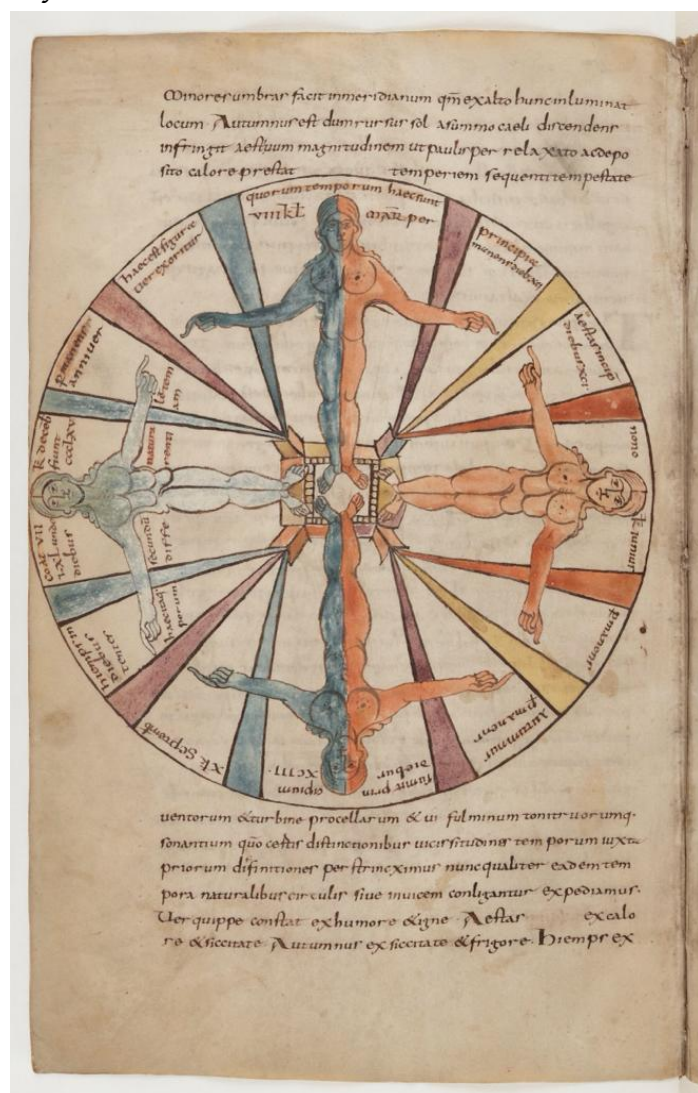 Minores umbras facit inmeridianum qm̄ exalto hunc inluminat
locum Autumnus est dum rursus sol asummo caeli discendens
infringit aestuum magnitudinem ut paulisper relaxato acdepo
sito calore prestat temperiem sequenti tempestate
quorum temporum haec sunt
viii kł mar̄ per
principia
haec est figurae
uer exoritur
p manens
anni uer
aestas incip̄
diebus xci
nono
kł iunius
p manens
autumnus
p manens
sumit prin
diebus
cipium
xciiii
xkł Septemb
hiemps in
diebus
kł decēb
fiunt
ccclxv
natura
secundū
diffe
renti
am
unde
diebus
uentorum & turbine procellarum & ui fulminum tonitruorumq·
sonantium quō celtis distinctionibus uicissitudines temporum iuxta
priorum difinitiones perstrinximus nunc qualiter eadem tem
pora naturalibus circulis siue inuicem conligantur expediamus·
Uer quippe constat exhumore & igne Aestas excalo
re & siccitate Autumnus ex siccitate & frigore· hiemps ex